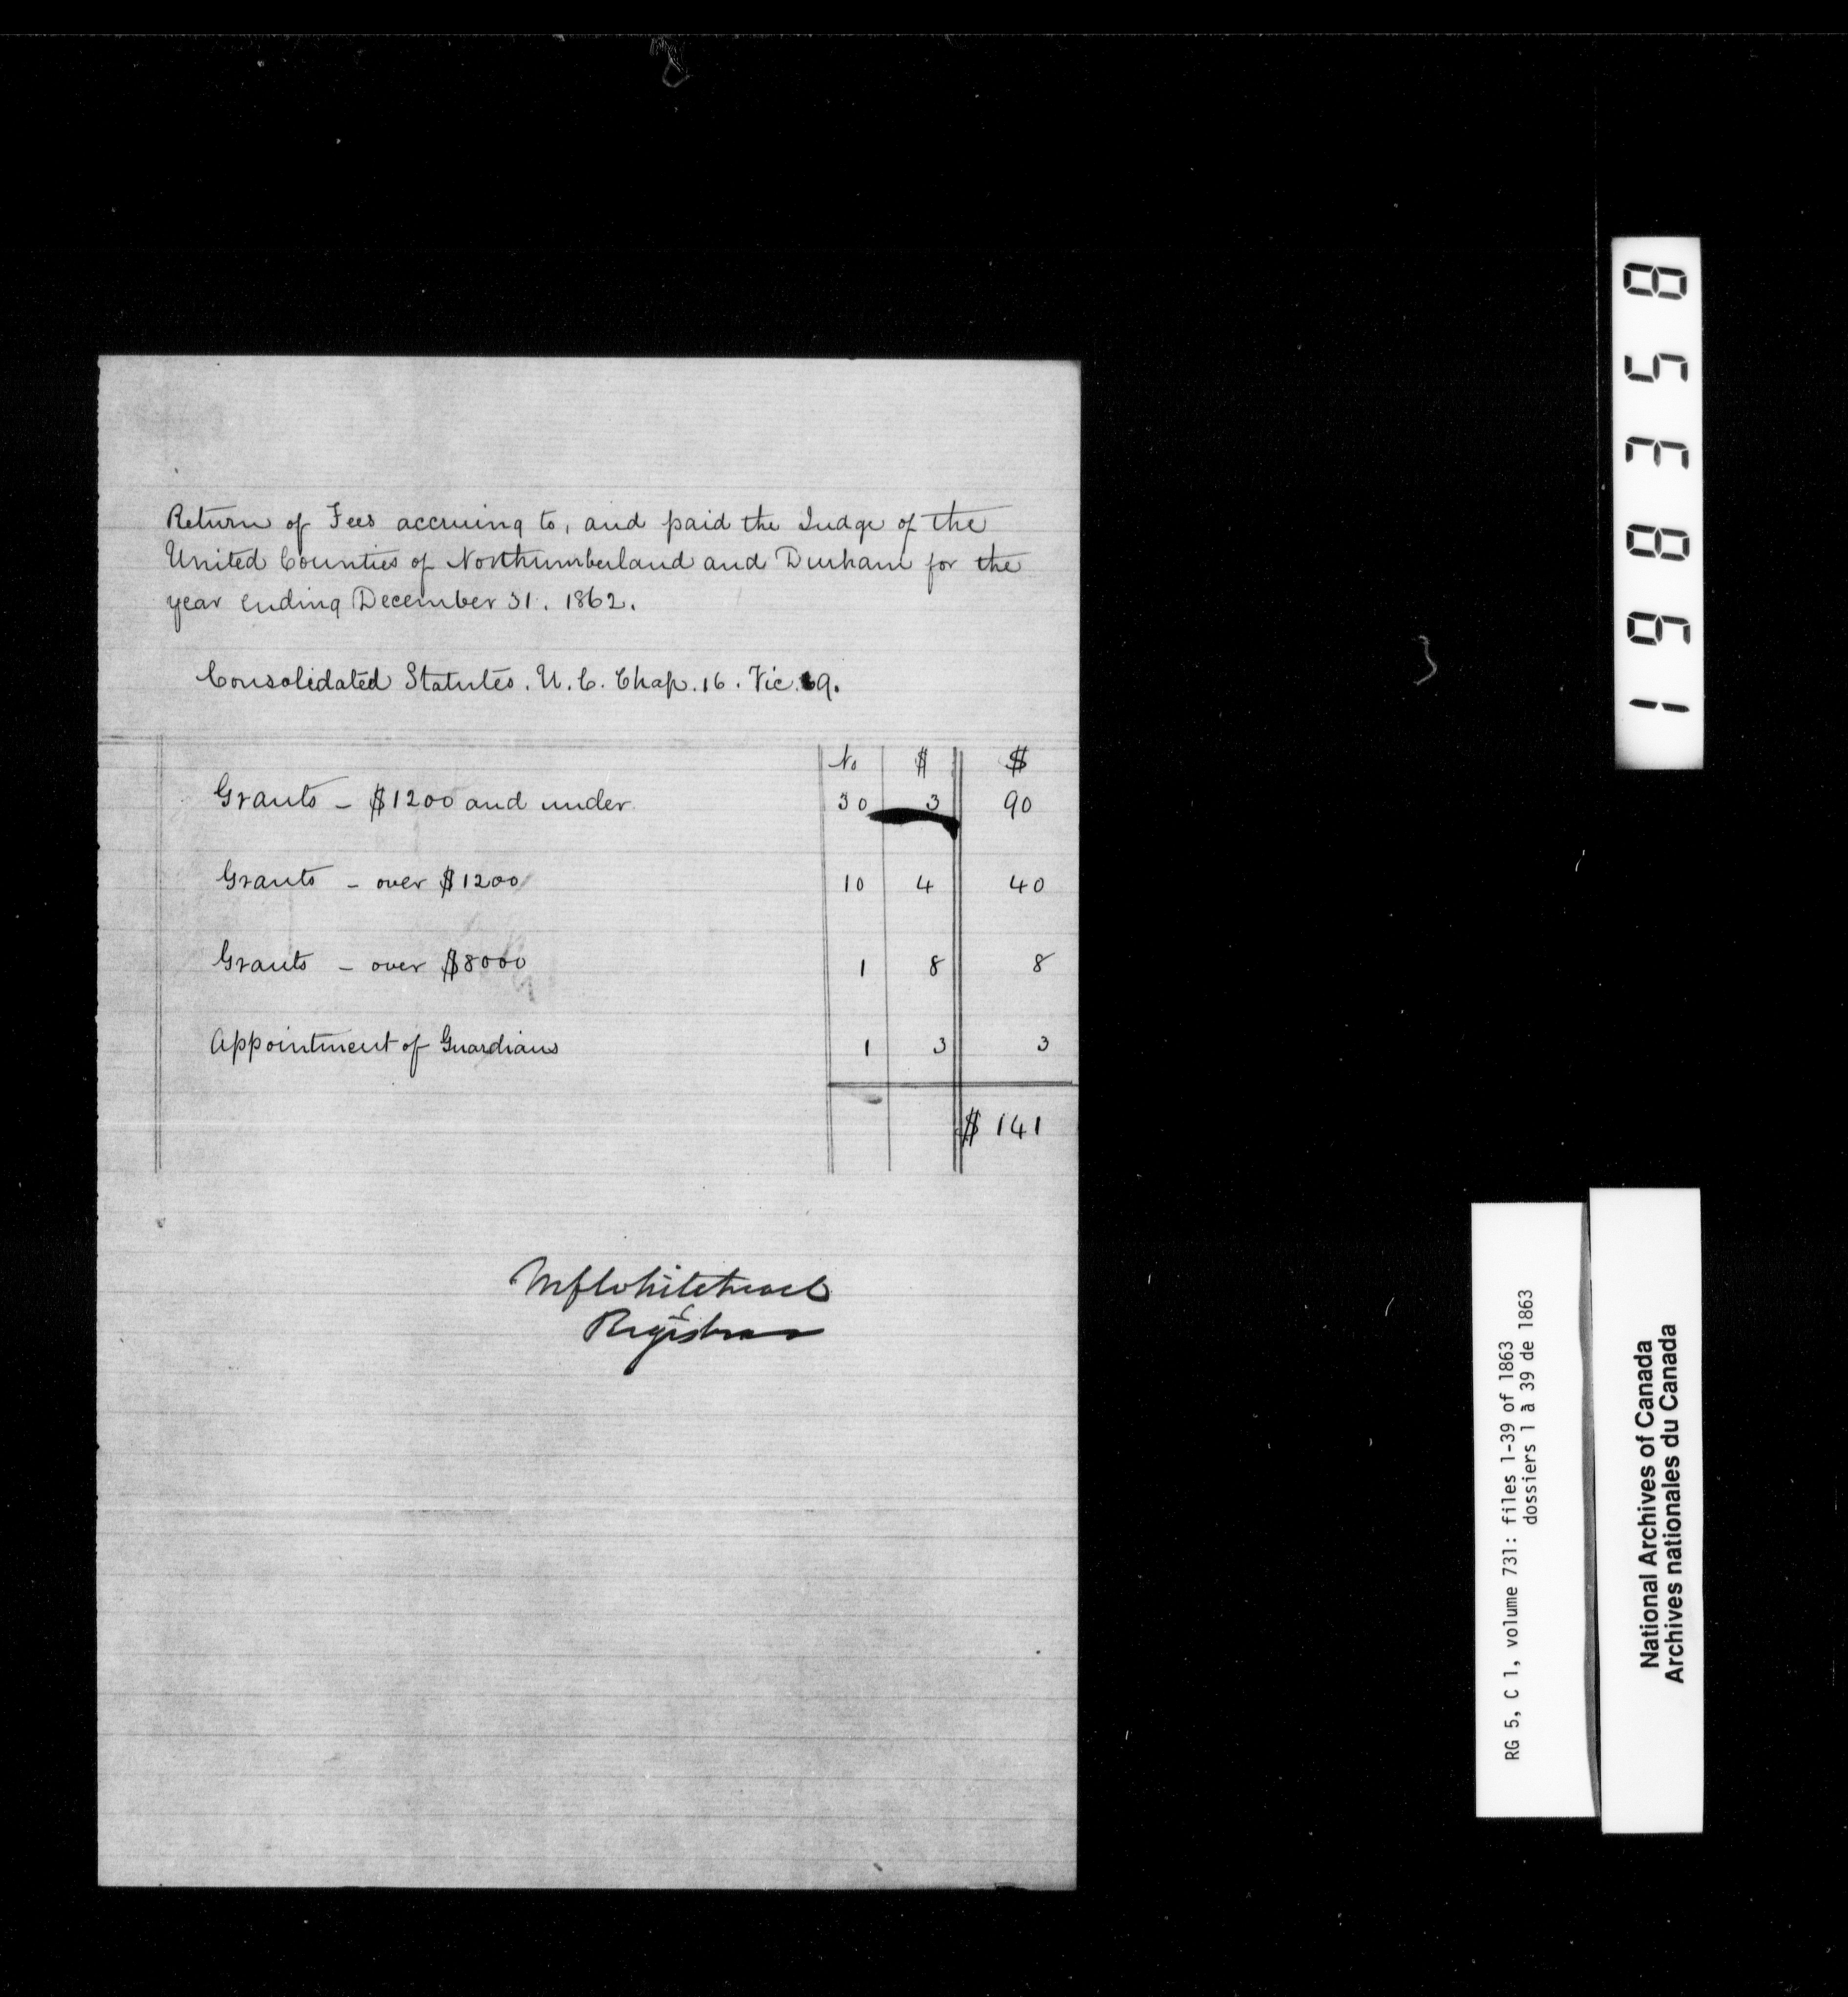 Return of Fees accruing to, and paid the Judge of the
United Counties of Northumberland and Durham for the
year ending December 31. 1862.
Consolidated Statutes. U. C. Chap. 16. Vic. 19.
No $ $
Grants - $1200 and under 30 3 90
Grants - over $1200 10 4 40
Grants - over $8000 1 8 8
Appointment of Guardians 1 3 3
$ 141
MFWhitehead
Registrar
198358
RG 5, C 1, volume 731: files 1-39 of 1863
dossiers 1 à 39 de 1863
National Archives of Canada
Archives nationales du Canada